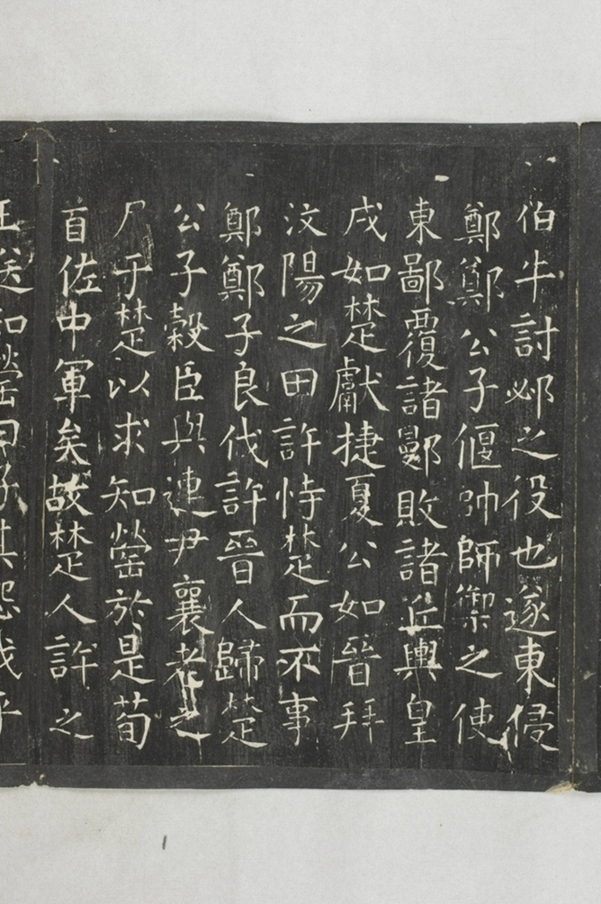 伯牛討邲之役也遂東侵
鄭鄭公子偃帥師禦之使
東鄙覆諸鄤敗諸丘輿皇
戌如楚獻捷夏公如晉拜
汶陽之田許恃楚而不事
鄭鄭子良伐許晉人歸楚
公子穀臣與連尹襄老之
尸于楚以求知罃於是荀
首佐中軍矣故楚人許之
王送知罃曰子其怨我乎